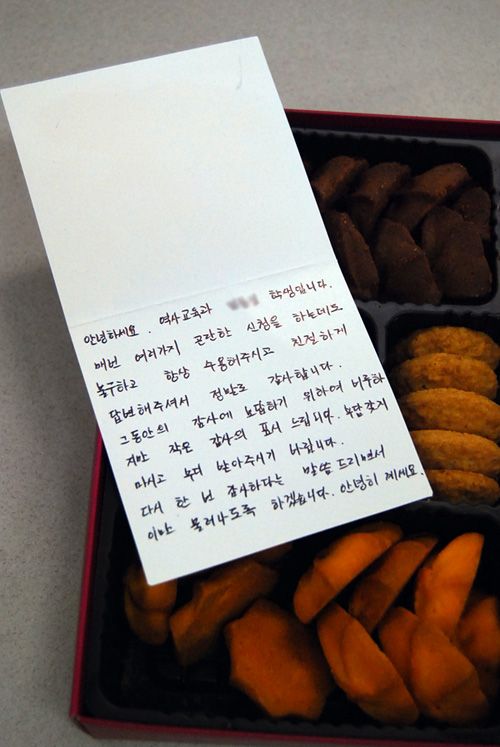 안녕하세요. 역사교육과 학생입니다.
매번 여러가지 곤란한 신청을 하는데도
불구하고 항상 수용해주시고 친절하게
답변해주셔서 정말로 감사합니다.
그동안의 감사에 보답하기 위하여 비루하
지만 작은 감사의 표시 드립니다. 부담갖지
마시고 부디 받아주시기 바랍니다.
다시 한 번 감사하다는 말씀 드리면서
이만 물러나도록 하겠습니다. 안녕히 계세요.